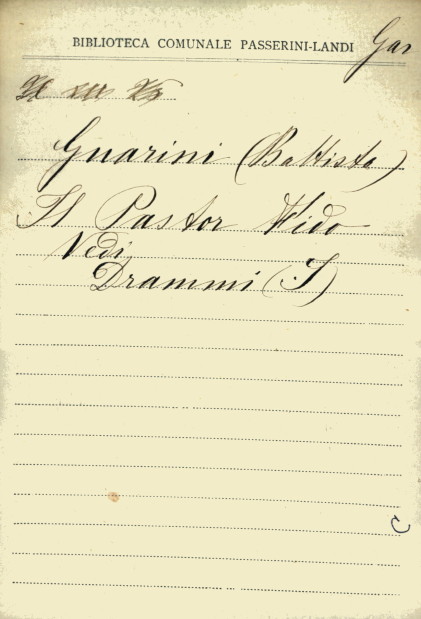 BIBLIOTECA COMUNALE PASSERINI-LANDI
Guarini (Battista)
Il Pastor Fido
Vedi
Drammi (I)